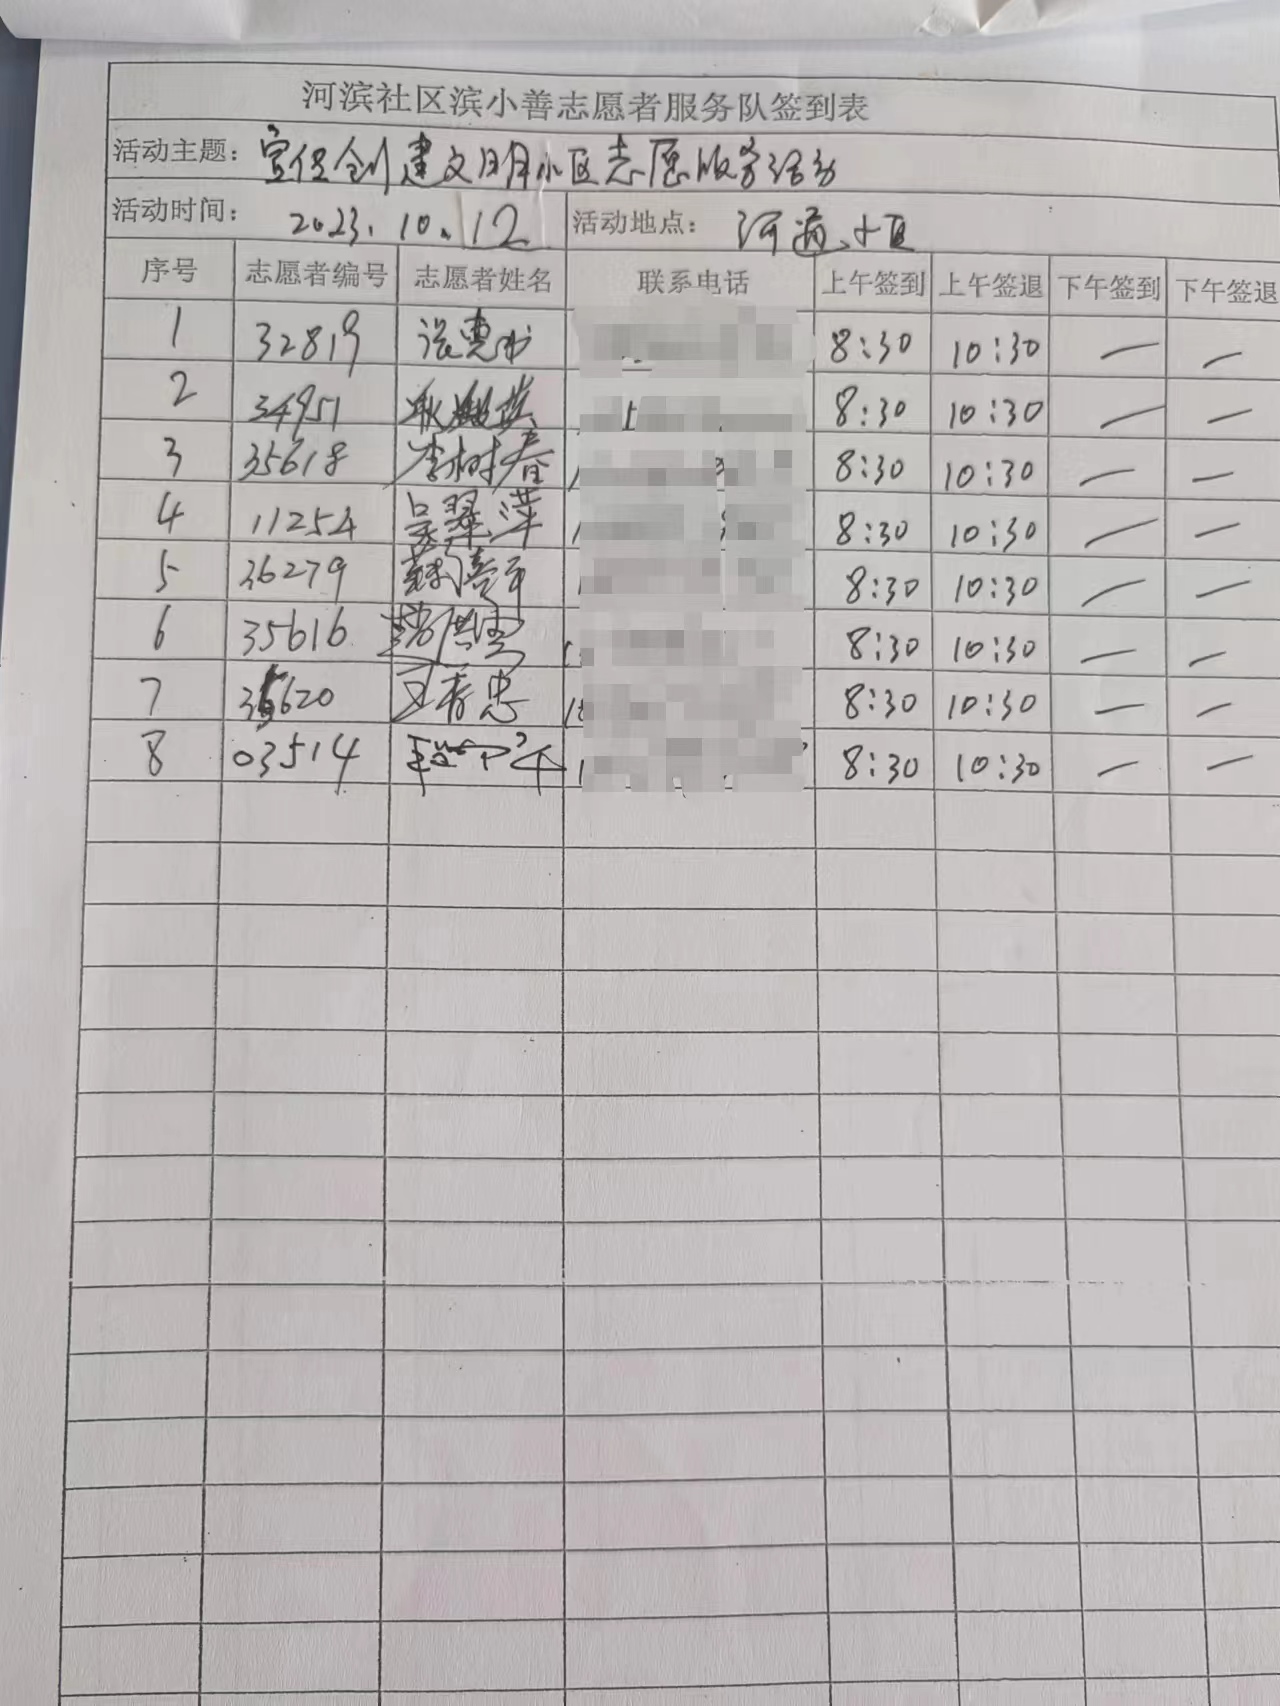 河滨社区滨小善志愿者服务队签到表
活动主题：宣传创建文明小区志愿服务活动
活动时间： 2023.10.12 活动地点： 河道小区
序号 志愿者编号 志愿者姓名 联系电话 上午签到 上午签退 下午签到 下午签退
1 32819 8:30 10:30 — —
2 34951 8:30 10:30 — —
3 35618 李树春 8:30 10:30 — —
4 11254 吴翠萍 8:30 10:30 — —
5 36279 8:30 10:30 — —
6 35616 8:30 10:30 — —
7 35620 王存忠 8:30 10:30 — —
8 03514 8:30 10:30 — —